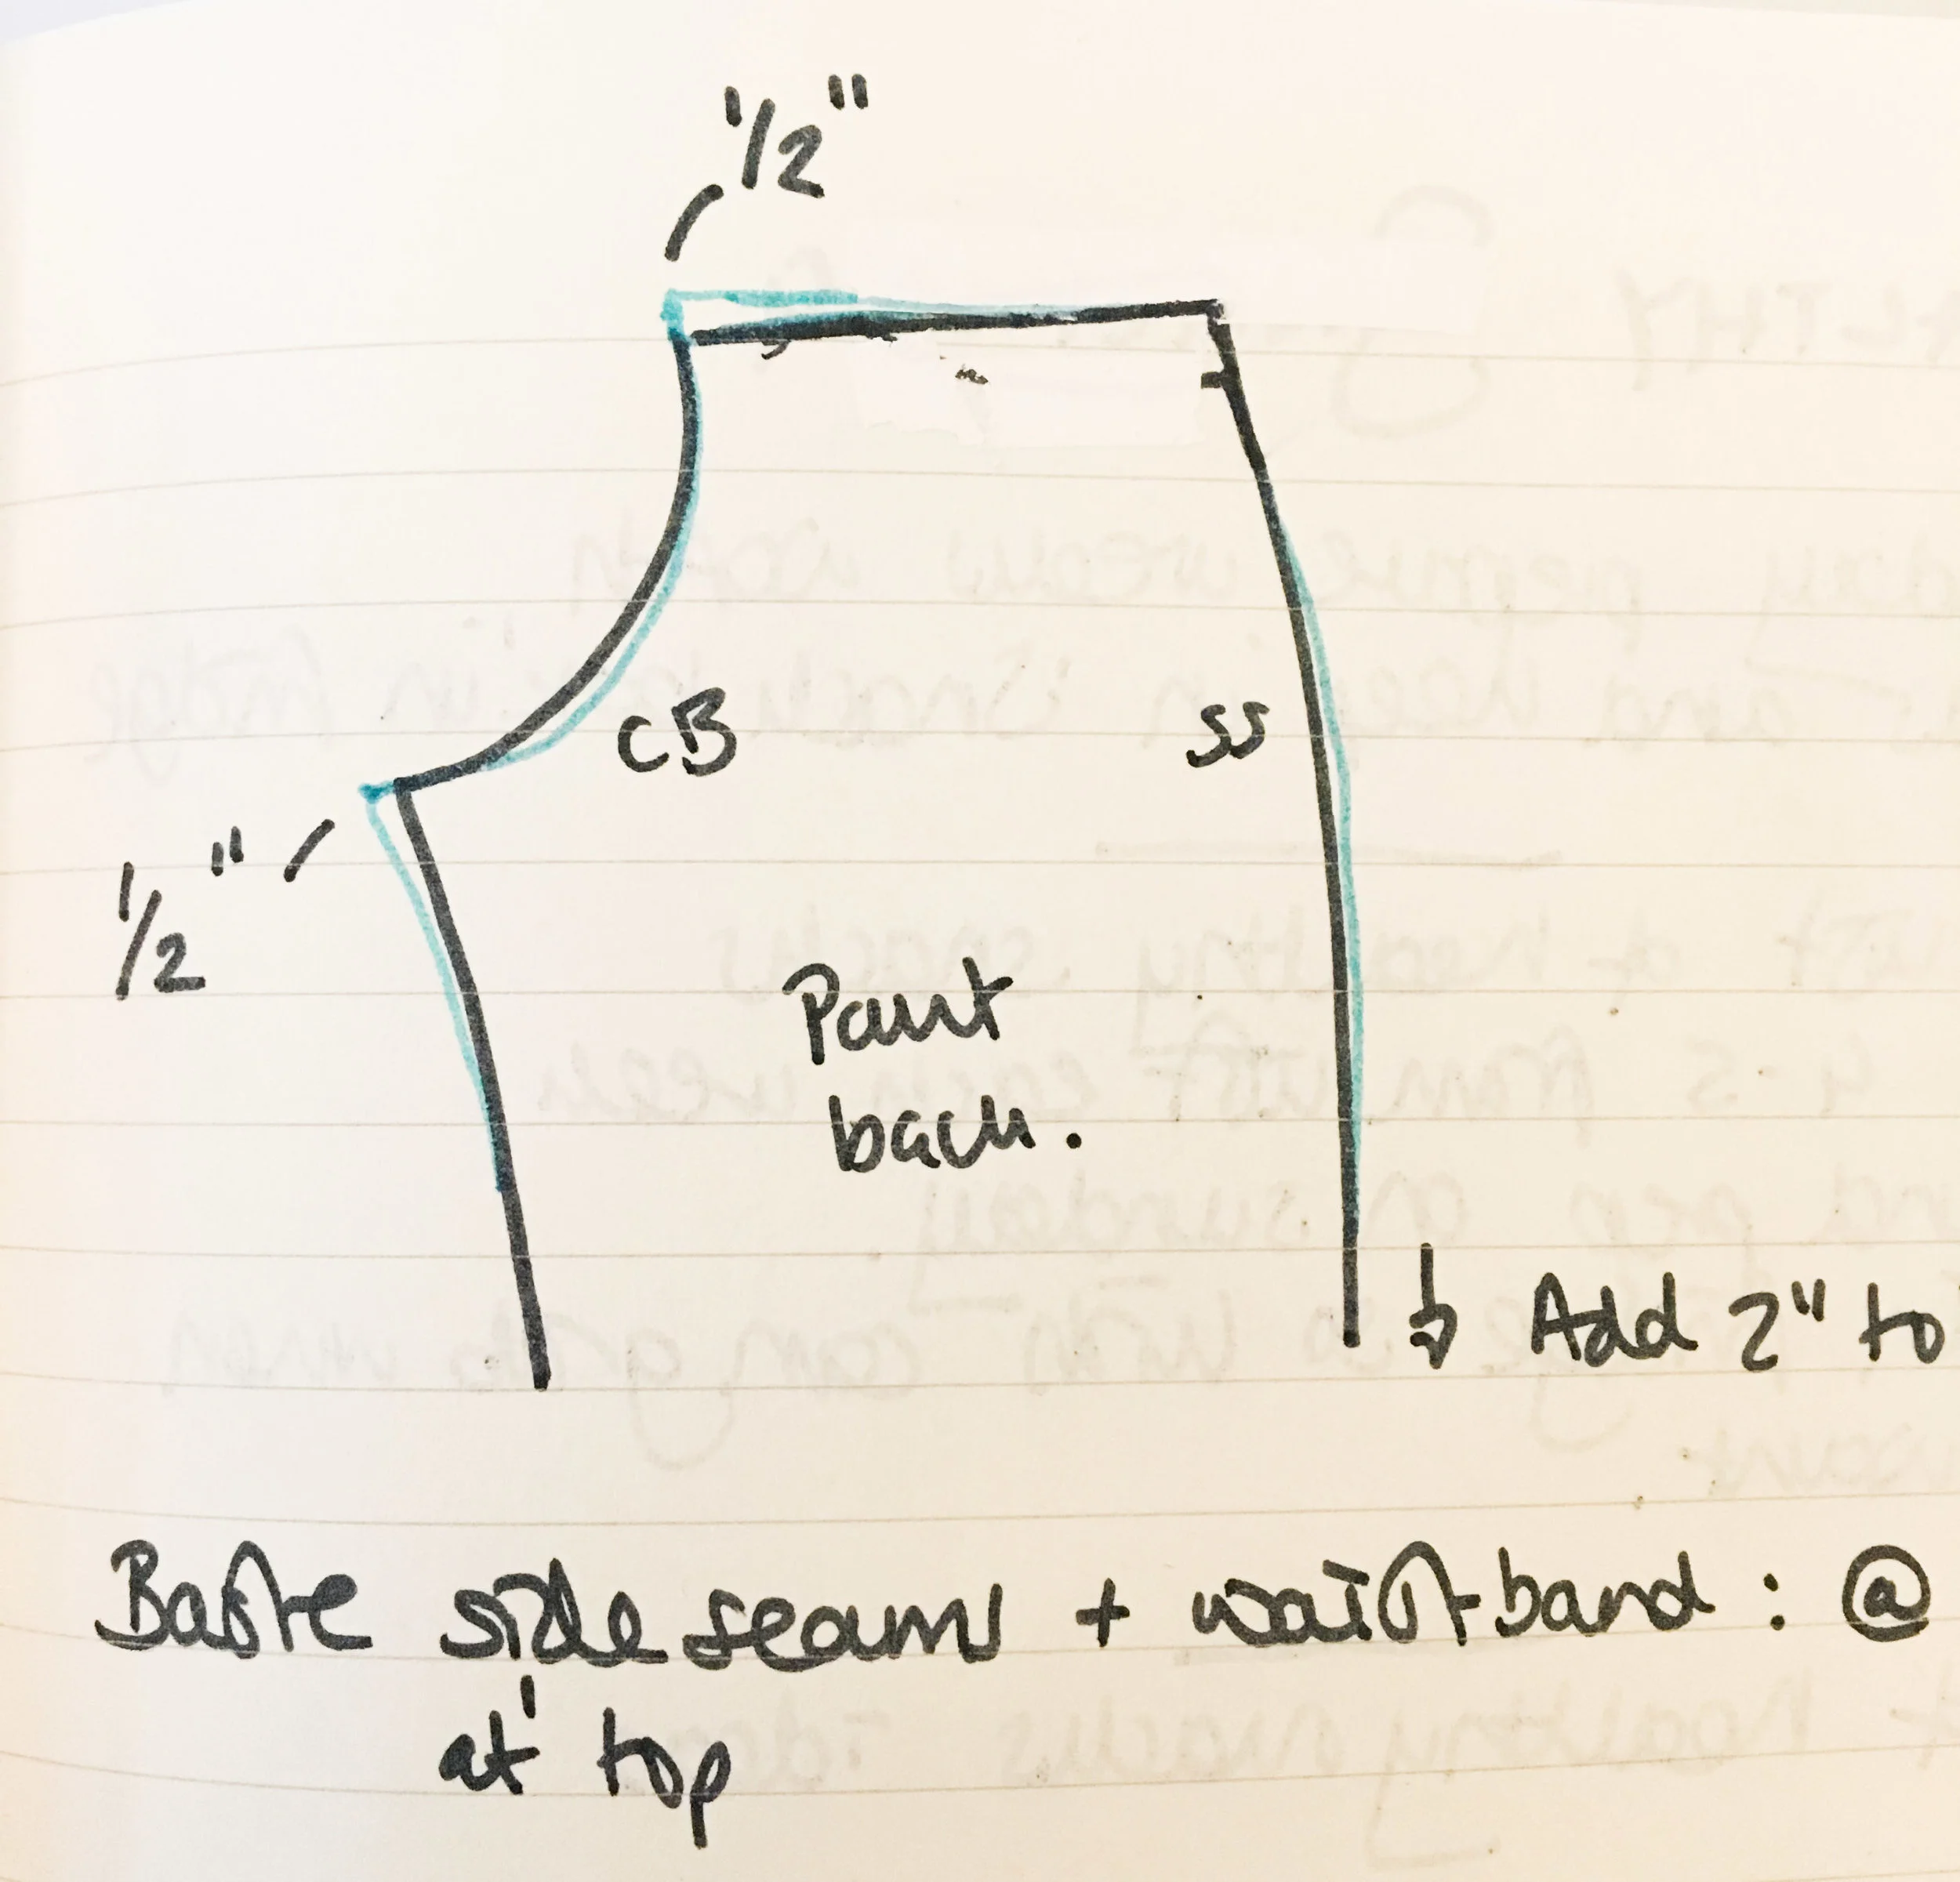 1/2"
CB
SS
1/2"
Pant
back.
Add 2" to
Baste side seams + waistband : @
at top